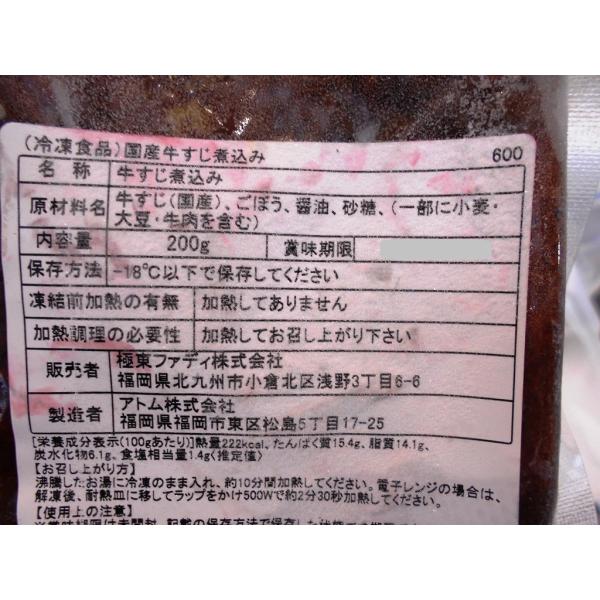 (冷凍食品)国産牛すじ煮込み 600
名称 牛すじ煮込み
原材料名 牛すじ(国産)、ごぼう、醤油、砂糖、(一部に小麦・
大豆・牛肉を含む)
内容量 200g 賞味期限
保存方法 -18℃以下で保存してください
凍結前加熱の有無 加熱してありません
加熱調理の必要性 加熱してお召し上がり下さい
販売者 極東ファディ株式会社
福岡県北九州市小倉北区浅野3丁目6-6
製造者 アトム株式会社
福岡県福岡市東区松島5丁目17-25
[栄養成分表示(100gあたり)]熱量222kcal、たんぱく質15.4g、脂質14.1g、
炭水化物6.1g、食塩相当量1.4g<推定値>
【お召し上がり方】
沸騰したお湯に冷凍のまま入れ、約10分間加熱してください。電子レンジの場合は、
解凍後、耐熱皿に移してラップをかけ500Wで約2分30秒加熱してください。
【使用上の注意】
※賞味期限は未開封、記載の保存方法で保存した状態での期限